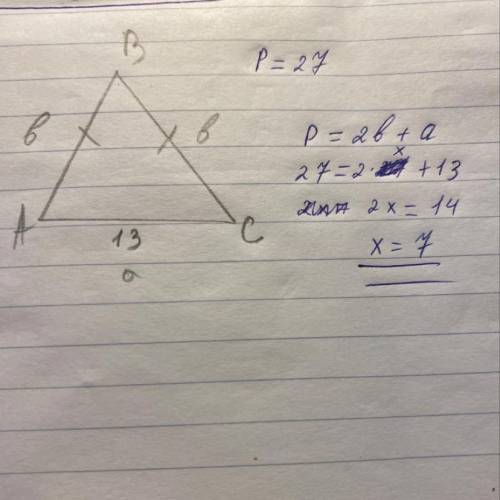 B
P = 27
в в
P = 2в + a
27 = 2·x + 13
A 13 C
2x = 14
a
x = 7